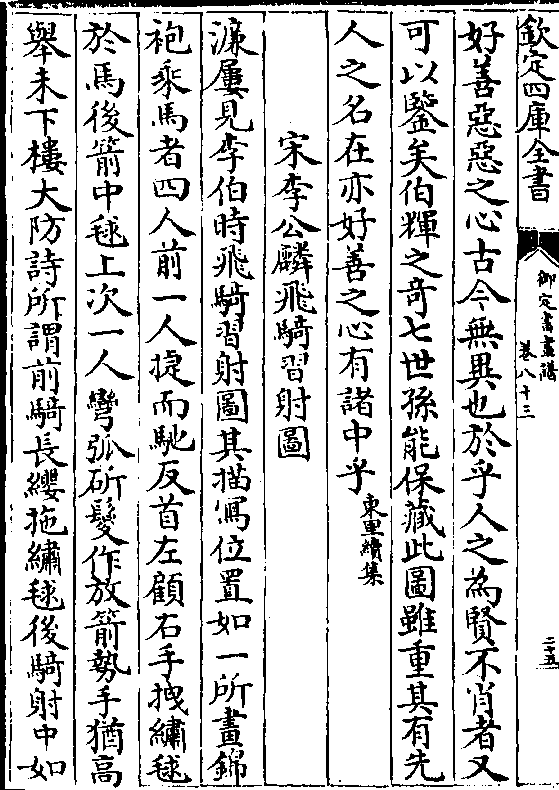 欽定四庫全書
御定書畫譜
卷八十三
二十五
好善惡惡之心古今無異也於乎人之為賢不肖者又
可以鑒矣伯輝之奇七世孫能保藏此圖雖重其有先
人之名在亦好善之心有諸中乎東里續集
宋李公麟飛騎習射圖
濂屢見李伯時飛騎習射圖其描寫位置如一所畫錦
袍乘馬者四人前一人捷而馳反首左顧右手拽繡毬
於馬後箭中毬上次一人彎弧斫鬃作放箭勢手猶高
舉未下樓大防詩所謂前騎長纓拖繡毬後騎射中如